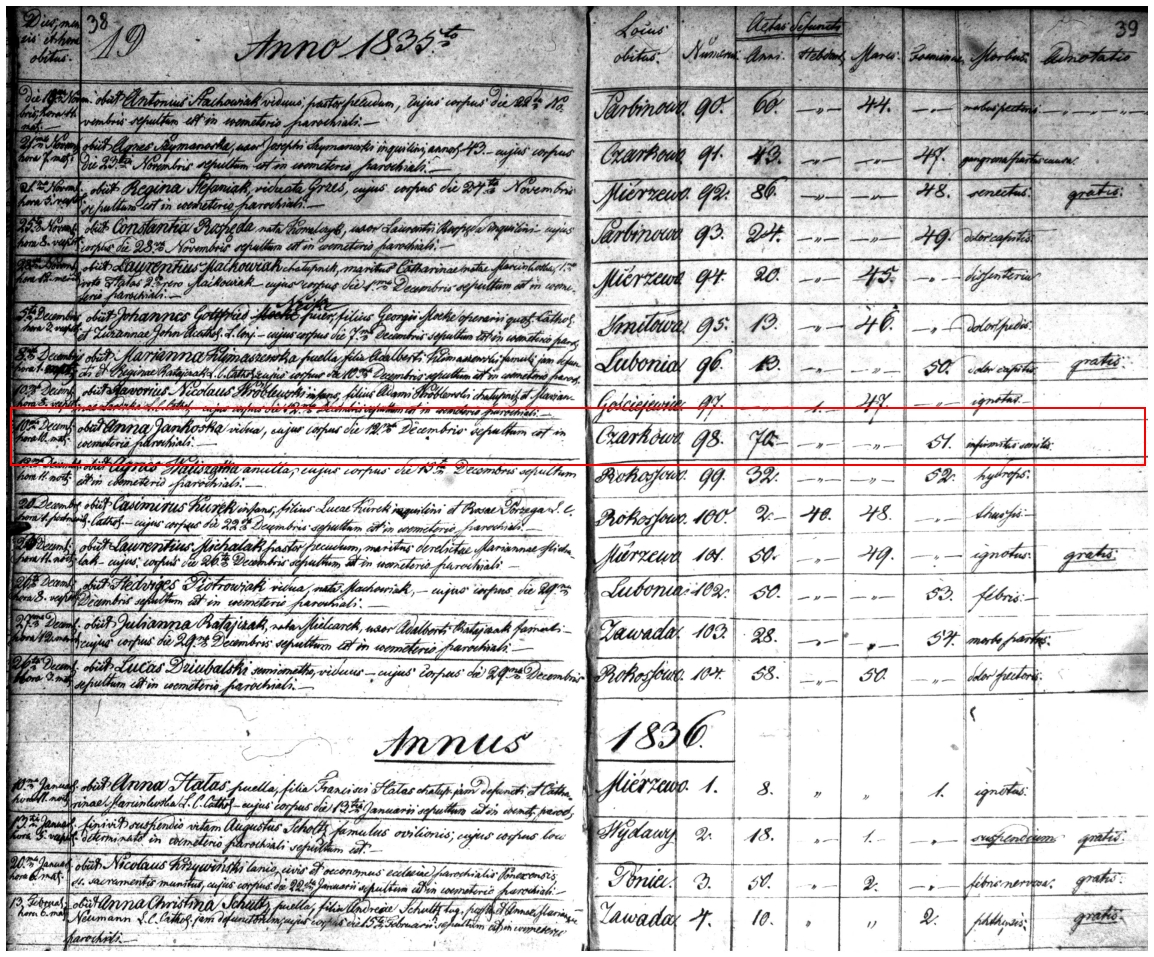 Dies, men
sis et hora
obitus.
38
19
Anno 1835to
Locus
obitus.
Numerus
Aetas defuncti
Anni. Hebdom.
Mares.
Foeminae
Morbus.
Adnotatio
39
obiit Antonius Stachowiak viduus, pastor pecudum, cujus corpus die 22da No
vembris sepultum est in coemeterio parochiali.—
Sarbinowo 90. 60 -„- 44. -„-
obiit Agnes Szymanoska, uxor Josephi Szymanoski inquilini, annos 43.- cujus corpus
die 23tia Novembris sepultum est in coemeterio parochiali.—
Czarkowo 91. 43. -„- -„- 47.
obiit Regina Stefaniak, viduata Grzes, cujus corpus die 24ta Novembris
sepultum est in coemeterio parochiali.—
Mierzewo 92. 86. -„- -„- 48. senectus. gratis.
obiit Constantia Rospeda, nata uxor Laurentii inquilini cujus
corpus die 28va Novembris sepultum est in coemeterio parochiali.—
Sarbinowo 93. 24. -„- -„- 49. dolor capitis.
obiit Laurentius Maćkowiak chalupnik, maritus Catharinae natae Marcinkoska, 1mo
voto Halas 2do vero Maćkowiak - cujus corpus die 1ma Decembris sepultum est in coeme-
terio parochiali.—
Mierzewo 94. 20. -„- 45. -„- dissenteria
Neuske
obiit Johannes Gottfried puer, filius Georgii operarii quasi Cathol.
et Zuzannae John L. Conj.- cujus corpus die 7ma Decembris sepultum est in coemeterio paroch.
Smiłowo 95. 13. -„- 46. -„- dolor pedis.
obiit Marianna Klimaszewska puella, filia Adalberti Klimaszewski famuli jam defun
cti et Reginae Ratajczak L. C. Cathol. cujus corpus die 10ma Decembris sepultum est in coemeterio paroch.
Lubonia 96. 13. -„- -„- 50. dolor capitis gratis.
obiit Xaverius Nicolaus Wróblewski infans, filius Adami Wróblewski chalupnik, et Marian
nae L. C. Cathol. - cujus corpus die 12ma Decembris sepultum est in coemeterio parochiali.—
Gościejewice 97. -„- 1. 47. -„- ignotus.
10ma Decemb.
hora 11. noct.
obiit Anna Jankoska vidua, cujus corpus die 12ma Decembris sepultum est in
coemeterio parochiali.—
Czarkowo 98. 70. „ -„- 51. infirmitas senilis.
obiit Agnes Waliszonka ancilla, cujus corpus die 15ta Decembris sepultum
est in coemeterio parochiali.—
Rokossowo 99. 32. -„- -„- 52. hydrops.
20 Decembr.
obiit Casimirus Kurek infans, filius Lucae Kurek inquilini et Rosae L. C.
Cathol.- cujus corpus die 22da Decembris sepultum est in coemeterio parochiali.—
Rokossowo 100. 2.- 40. 48. -„- thussis.
obiit Laurentius Michalak pastor pecudum, maritus derelictae Mariannae Micha
lak- cujus corpus die 26ta Decembris sepultum est in coemeterio parochiali—
Mierzewo 101. 50. -„- 49. „ ignotus. gratis.
obiit Hedviges Piotrowiak vidua, nata Maćkowiak, - cujus corpus die 29na
Decembris sepultum est in coemeterio parochiali.—
Lubonia 102. 50. -„- „ 53. febris.
obiit Julianna Ratajczak, nata Mielcarek, uxor Adalberti Ratajczak famuli-
cujus corpus die 29na Decembris sepultum est in coemeterio parochiali.—
Zawada 103. 28. -„- „ 54. morbo partus.
obiit Lucas Dziubalski semimetta, viduus- cujus corpus die 29na Decembris
sepultum est in coemeterio parochiali.—
Rokossowo 104. 58. -„- 50. -„- dolor pectoris.
Annus 1836.
10ma Januar.
hora 11. noct.
obiit Anna Halas puella, filia Francisci Halas chalup. jam defuncti et Catha-
rinae Marcinkoska L. C. Cathol. - cujus corpus die 13tia Januarii sepultum est in coemet. paroch.
Mierzewo 1. 8. „ „ 1. ignotus.
13tia Januar.
finivit suspendio vitam Augustus Scholtz famulus ovilionis, cujus corpus loco
determinato in coemeterio parochiali sepultum est.
Wydawy 2. 18. „ 1. -„- suspendium gratis.
20ma Januar.
obiit Nicolaus Krzywiński lanio, civis et oeconomus ecclesiae parochialis Ponecensis,
ss. sacramentis munitus, cujus corpus die 22da Januarii sepultum est in coemeterio parochiali.—
Ponie 3. 50. „ 2. -„- febris nervosa. gratis.
13. Februar.
hora 6. mat.
obiit Anna Christina Schultz puella, filia Andreae Schultz et Annae Mariae
Neumann L. C. Cathol. jam defunctorum, cujus corpus die 15ta Februarii sepultum est in coemeterio
parochiali.—
Zawada 4. 10. „ „ 2. phthysis. gratis.